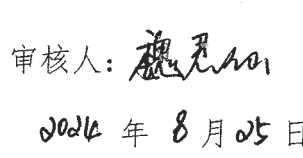 审核人：魏
2024 年 8 月 25 日